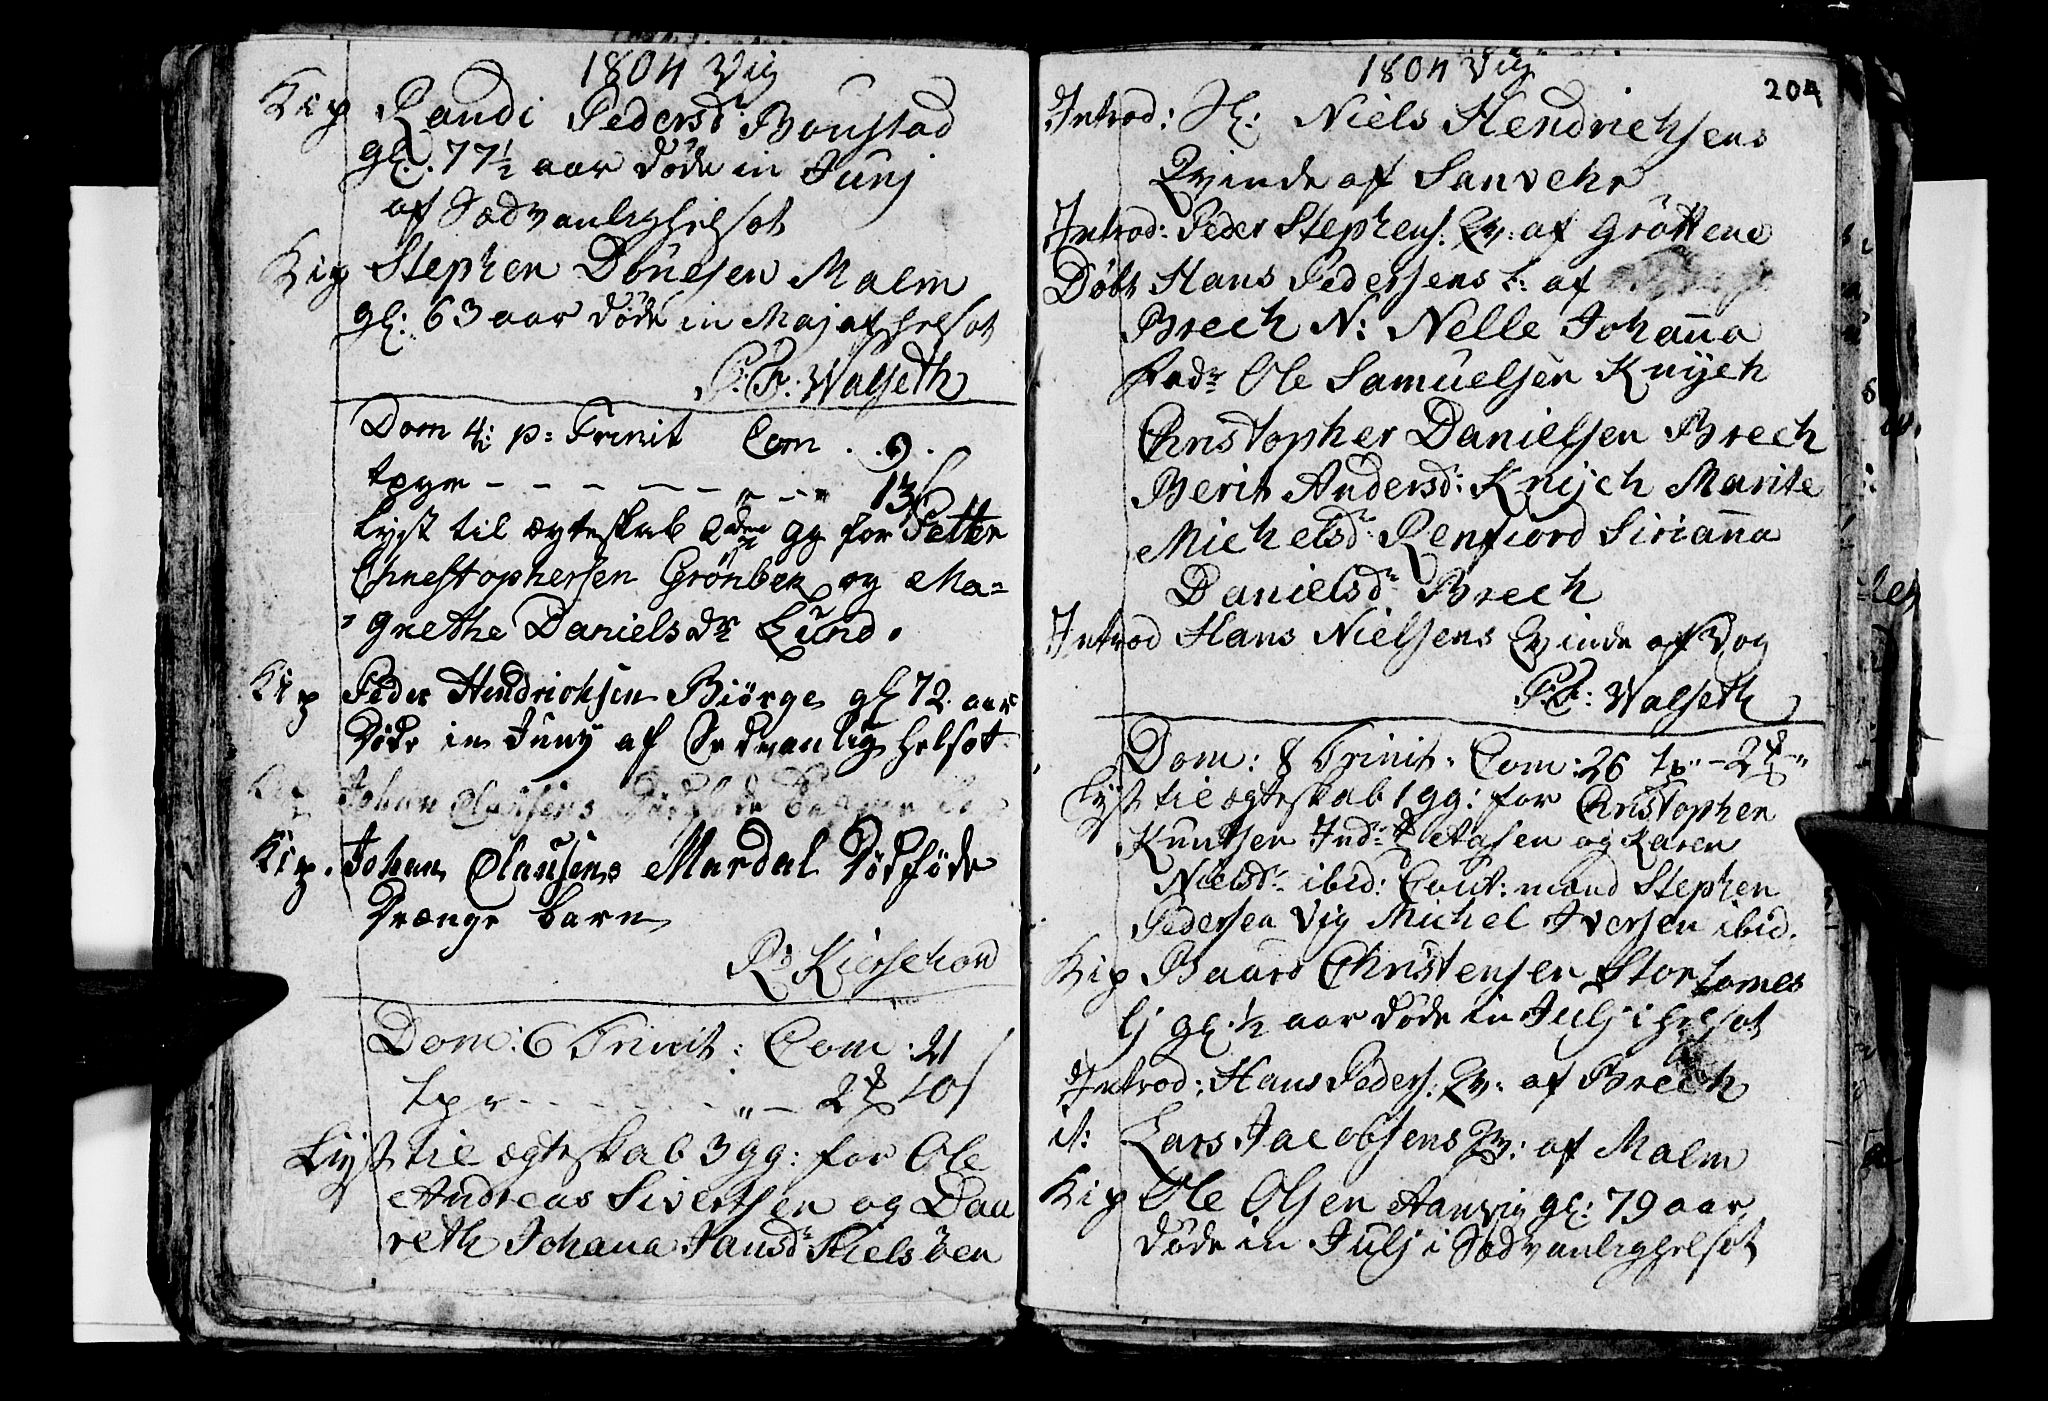 1804 Vig
Kip Randi Pedersdr Boustad
gl: 77½ aar døde in Junj
af Sædvanlig helsot
Kip Stephen Dønesen Malm
gl: 63 aar døde in Maj af helsot
P: F: Walseth
Dom 4: p: Trinit Com . . 9 .
tpgr - - - - - - - - 13 ß
Lyst til ægteskab 2den gg for Petter
Christophersen Grønbek og Ma-
grethe Daniels dr Lund.
Kip Peder Hendrichsen Biørge gl 72 aar
døde in Juny af Sedvanlig helsot
Kip Johan Clausens
Kip. Johan Clausens Mardal dødføde
drænge barn
Rs Kierschou
Dom: 6 Trinit: Com: 21
tpgr - - - - - - - 2 10 ß
Lyst til ægteskab 3 gg: for Ole
Andreas Sivertsen og Dau
reth Johana Jansdr Kielsøen
1804 Vig
204
Introd: Sl: Niels Hendrichsens
Qvinde af Sanvehr
Introd: Peder Stephens: Qv: af Grøttene
Døbt Hans Pedersens b: af
Brech N: Nelle Johanna
Fadr Ole Samuelsen Knych
Christopher Danielsen Brech
Berit Andersd: Knych Marite
Michelsdr Renfiord Sirianna
Danielsdr Brech
Introd Hans Nielsens Qvinde af Dog
P: F: Walseth
Dom: 8 Trinit: Com: 26 tp - 2
Lyst til ægteskab 1 gg: for Christopher
Knutsen Indr Aasen og Karen
Nielsdr ibid: Caut: mænd Stephen
Pedersen Vig Michel Iversen ibid.
Kip Baard Christensen Stor tomes
lj gl: ½ aar døde in Julj i helsot
Introd: Hans Peders: Qv: af Brech
it: Lars Jacobsens Qv: af Malm
Kip Ole Olsen Aanvig gl: 79 aar
døde in Julj i Sædvanlig helsot